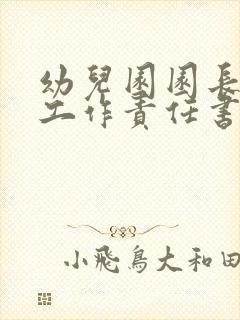 幼兒園園長
工作責任書
小飛鳥大和田